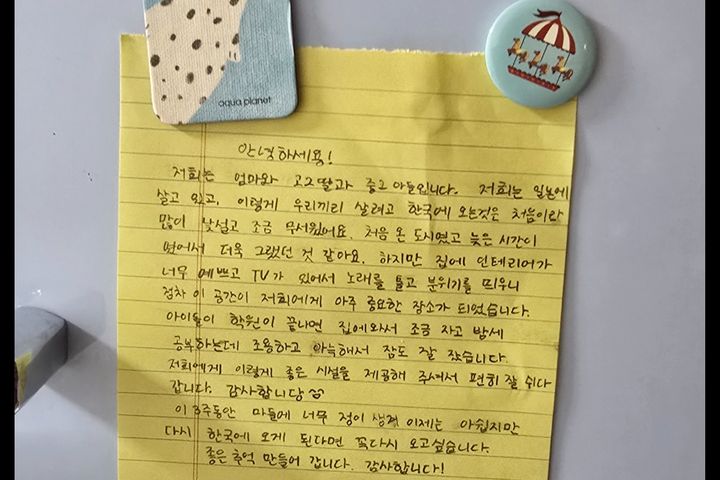 aqua planet
안녕하세용!
저희는 엄마와 고2딸과 중2 아들입니다. 저희는 일본에
살고 있고, 이렇게 우리끼리 살려고 한국에 오는것은 처음이란
많이 낯설고 조금 무서웠어요. 처음 온 도시였고 늦은 시간이
였어서 더욱 그랬던 것 같아요. 하지만 집에 인테리어가
너무 예쁘고 TV가 있어서 노래를 틀고 분위기를 띄우니
점차 이 공간이 저희에게 아주 중요한 장소가 되었습니다.
아이들이 학원이 끝나면 집에와서 조금 자고 밤새
공부하는데 조용하고 아늑해서 잠도 잘 잤습니다.
저희에게 이렇게 좋은 시설을 제공해 주셔서 편히 잘 쉬다
갑니다. 감사합니당
이 3주동안 마들에 너무 정이 생겨 이제는 아쉽지만
다시 한국에 오게 된다면 꼭다시 오고싶습니다.
좋은 추억 만들어 갑니다. 감사합니다!